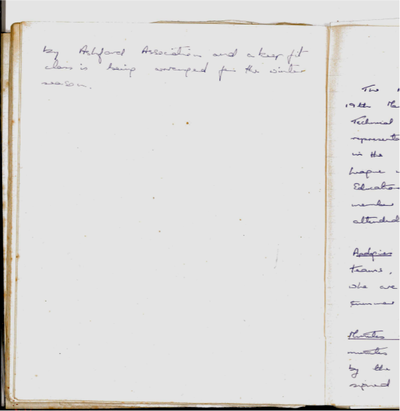 by Ashford Association and a keep fit
class is being arranged for the winter
season.
The
19th Ma
Technical
representa
in the
League
Education
member
attended
Apologies
teams,
who are
summer
Minutes
minutes
by the
signed